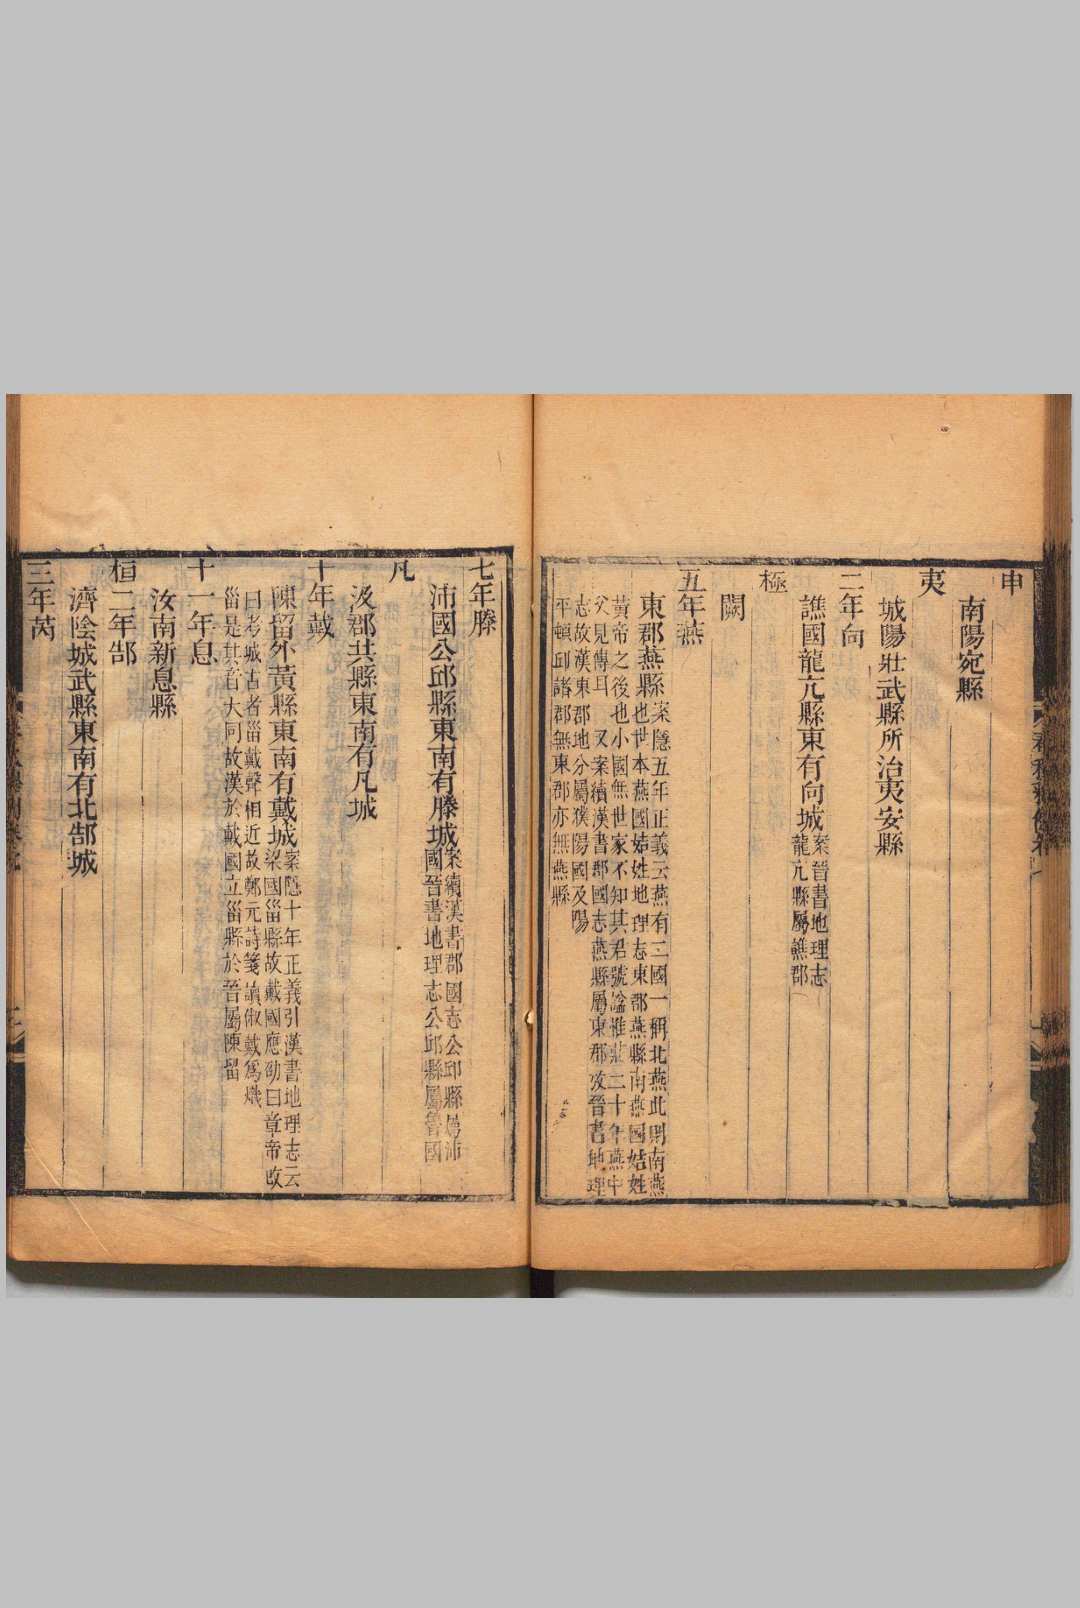 申
南陽宛縣
夷
城陽壯武縣所治夷安縣
二年向
譙國龍亢縣東有向城案晉書地理志
龍亢縣屬譙郡
極
闕
五年燕
東郡燕縣案隱五年正義云燕有二國一稱北燕此則南燕
也世本燕國姞姓地理志東郡燕縣南燕國姞姓
黃帝之後也小國無世家不知其君號諡惟莊二十年燕仲
父見傳耳 又案續漢書郡國志燕縣屬東郡攷晉書地理
志故漢東郡地分屬濮陽國及陽
平頓邱諸郡無東郡亦無燕縣
七年滕
沛國公邱縣東南有滕城案續漢書郡國志公邱縣屬沛
國晉書地理志公邱縣屬魯國
凡
汲郡共縣東南有凡城
十年戴
陳留外黃縣東南有戴城案隱十年正義引漢書地理志云
梁國甾縣故戴國應劭曰章帝改
曰考城古者甾戴聲相近故鄭元詩箋讀俶載爲熾
甾是其音大同故漢於戴國立甾縣於晉屬陳留
十一年息
汝南新息縣
桓二年郜
濟陰城武縣東南有北郜城
三年芮